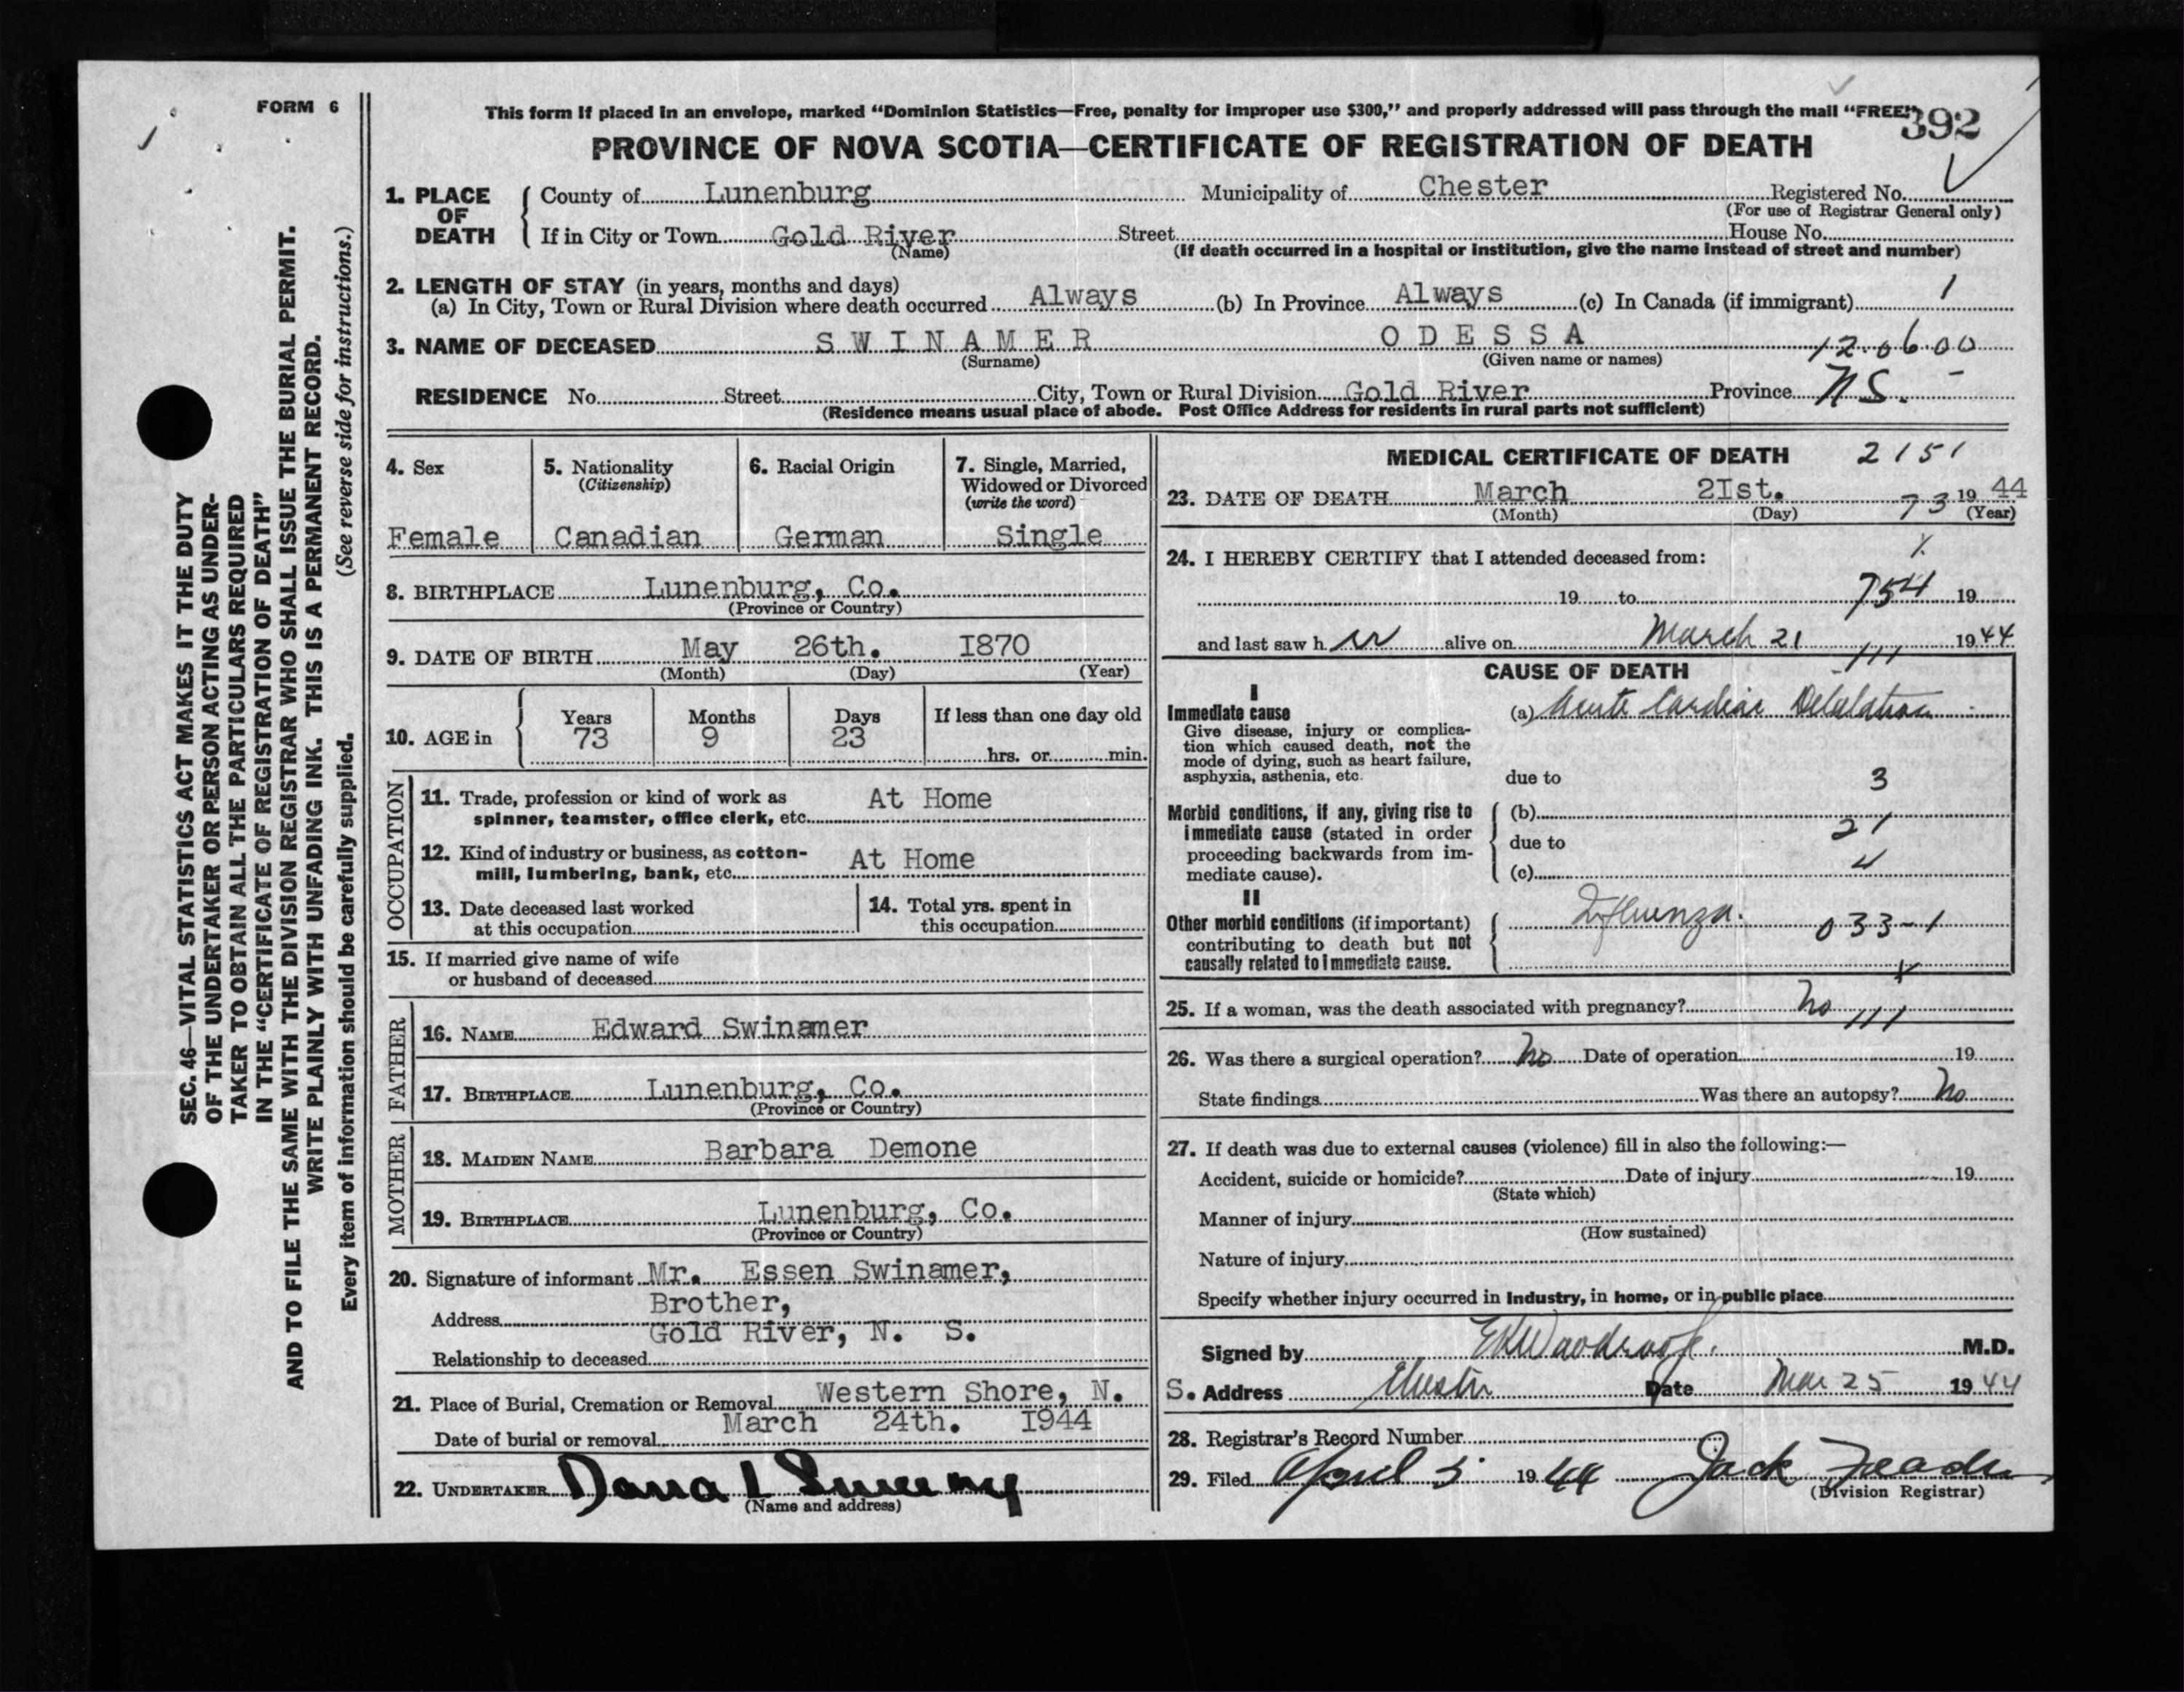 FORM 6
This form if placed in an envelope, marked “Dominion Statistics—Free, penalty for improper use $300,” and properly addressed will pass through the mail “FREE”
392
PROVINCE OF NOVA SCOTIA—CERTIFICATE OF REGISTRATION OF DEATH
1. PLACE OF DEATH
County of Lunenburg Municipality of Chester Registered No.
(For use of Registrar General only)
If in City or Town Gold River Street House No.
(Name) (If death occurred in a hospital or institution, give the name instead of street and number)
2. LENGTH OF STAY (in years, months and days)
(a) In City, Town or Rural Division where death occurred Always (b) In Province Always (c) In Canada (if immigrant) 1
3. NAME OF DECEASED SWINAMER ODESSA 12.06.00
(Surname) (Given name or names)
RESIDENCE No. Street City, Town or Rural Division Gold River Province N.S.
(Residence means usual place of abode. Post Office Address for residents in rural parts not sufficient)
4. Sex
Female
5. Nationality
(Citizenship)
Canadian
6. Racial Origin
German
7. Single, Married,
Widowed or Divorced
(write the word)
Single
8. BIRTHPLACE Lunenburg, Co.
(Province or Country)
9. DATE OF BIRTH May 26th. I870
(Month) (Day) (Year)
10. AGE in
Years Months Days If less than one day old
73 9 23
hrs. or min.
OCCUPATION
11. Trade, profession or kind of work as At Home
spinner, teamster, office clerk, etc.
12. Kind of industry or business, as cotton- At Home
mill, lumbering, bank, etc.
13. Date deceased last worked
at this occupation
14. Total yrs. spent in
this occupation
15. If married give name of wife
or husband of deceased
FATHER
16. NAME Edward Swinamer
17. BIRTHPLACE Lunenburg, Co.
(Province or Country)
MOTHER
18. MAIDEN NAME Barbara Demone
19. BIRTHPLACE Lunenburg, Co.
(Province or Country)
20. Signature of informant Mr. Essen Swinamer,
Brother,
Address
Gold River, N. S.
Relationship to deceased
21. Place of Burial, Cremation or Removal Western Shore, N. S.
March 24th. I944
Date of burial or removal
22. UNDERTAKER Dana L Sweeny
(Name and address)
MEDICAL CERTIFICATE OF DEATH 2151
23. DATE OF DEATH March 2Ist. 73 19 44
(Month) (Day) (Year)
24. I HEREBY CERTIFY that I attended deceased from:
19 to 754 19
and last saw h er alive on March 21 1944
111
CAUSE OF DEATH
I
Immediate cause
Give disease, injury or complica-
tion which caused death, not the
mode of dying, such as heart failure,
asphyxia, asthenia, etc.
(a) Acute Cardiac
due to 3
Morbid conditions, if any, giving rise to
immediate cause (stated in order
proceeding backwards from im-
mediate cause).
(b)
21
due to
4
(c)
II
Other morbid conditions (if important)
contributing to death but not
causally related to immediate cause.
Influenza. 033-1
25. If a woman, was the death associated with pregnancy? No 111
26. Was there a surgical operation? No Date of operation 19
State findings Was there an autopsy? No
27. If death was due to external causes (violence) fill in also the following:—
Accident, suicide or homicide? Date of injury 19
(State which)
Manner of injury
(How sustained)
Nature of injury
Specify whether injury occurred in industry, in home, or in public place
Signed by M.D.
Address Chester Date Mar 25 1944
28. Registrar's Record Number
29. Filed April 5 1944 Jack
(Division Registrar)
SEC. 46—VITAL STATISTICS ACT MAKES IT THE DUTY
OF THE UNDERTAKER OR PERSON ACTING AS UNDER-
TAKER TO OBTAIN ALL THE PARTICULARS REQUIRED
IN THE “CERTIFICATE OF REGISTRATION OF DEATH”
AND TO FILE THE SAME WITH THE DIVISION REGISTRAR WHO SHALL ISSUE THE BURIAL PERMIT.
WRITE PLAINLY WITH UNFADING INK. THIS IS A PERMANENT RECORD.
Every item of information should be carefully supplied. (See reverse side for instructions.)